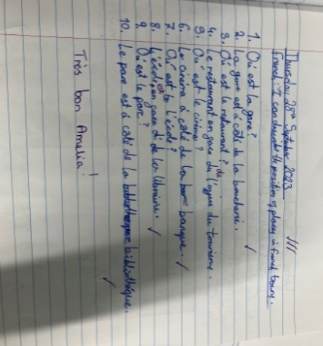 Thursday 28th September 2023
French - I can describe the position of places in french towns.
1. Où est la gare?
2. La gare est à côté de la boucherie.
3. Où est le restaurant?
4. Le restaurant en face de l'office du tourisme.
5. Où est le cinéma?
6. Le cinéma à côté de la banque.
7. Où est l'école?
8. L'école est en face de la librairie.
9. Où est le parc?
10. Le parc est à côté de la bibliothèque.
Très bon Amelia!